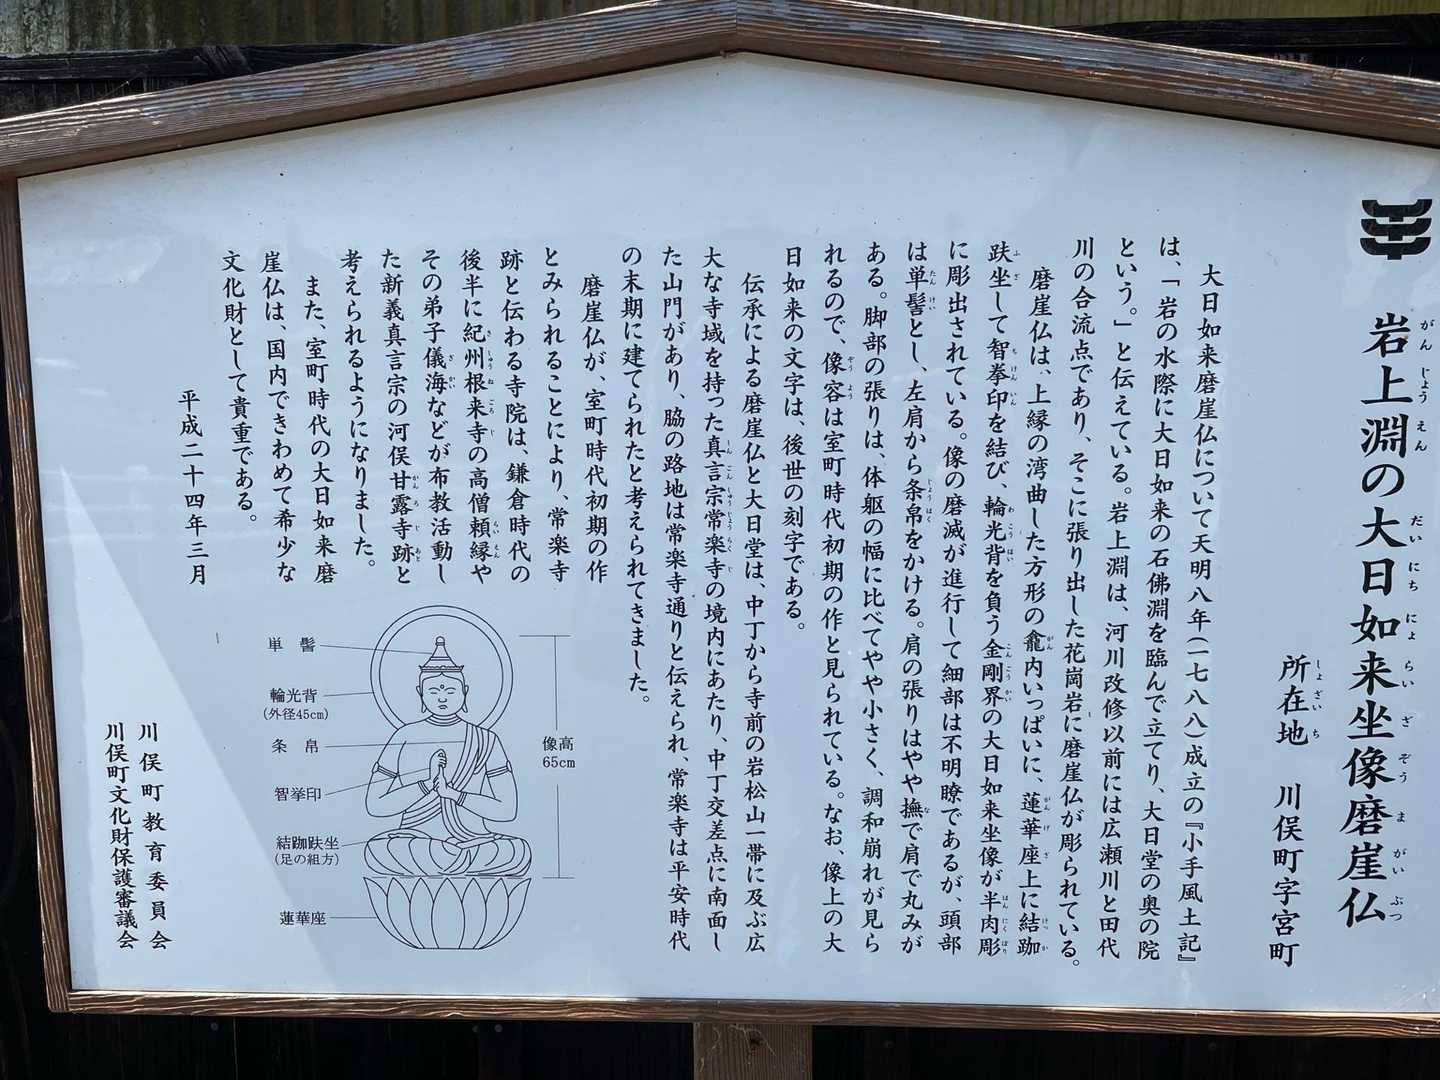 岩上淵の大日如来坐像磨崖仏
所在地　川俣町字宮町
大日如来磨崖仏について天明八年(一七八八)成立の『小手風土記』
は、「岩の水際に大日如来の石佛淵を臨んで立てり、大日堂の奥の院
という。」と伝えている。岩上淵は、河川改修以前には広瀬川と田代
川の合流点であり、そこに張り出した花崗岩に磨崖仏が彫られている。
磨崖仏は、上縁の湾曲した方形の龕内いっぱいに、蓮華座上に結跏
趺坐して智拳印を結び、輪光背を負う金剛界の大日如来坐像が半肉彫
に彫出されている。像の磨滅が進行して細部は不明瞭であるが、頭部
は単髻とし、左肩から条帛をかける。肩の張りはやや撫で肩で丸みが
ある。脚部の張りは、体躯の幅に比べてやや小さく、調和崩れが見ら
れるので、像容は室町時代初期の作と見られている。なお、像上の大
日如来の文字は、後世の刻字である。
伝承による磨崖仏と大日堂は、中丁から寺前の岩松山一帯に及ぶ広
大な寺域を持った真言宗常楽寺の境内にあたり、中丁交差点に南面し
た山門があり、脇の路地は常楽寺通りと伝えられ、常楽寺は平安時代
の末期に建てられたと考えられてきました。
磨崖仏が、室町時代初期の作
とみられることにより、常楽寺
跡と伝わる寺院は、鎌倉時代の
後半に紀州根来寺の高僧頼縁や
その弟子儀海などが布教活動し
た新義真言宗の河俣甘露寺跡と
考えられるようになりました。
また、室町時代の大日如来磨
崖仏は、国内できわめて希少な
文化財として貴重である。
平成二十四年三月
単髻
輪光背
(外径45cm)
条帛
智挙印
結跏趺坐
(足の組方)
蓮華座
像高
65cm
川俣町教育委員会
川俣町文化財保護審議会